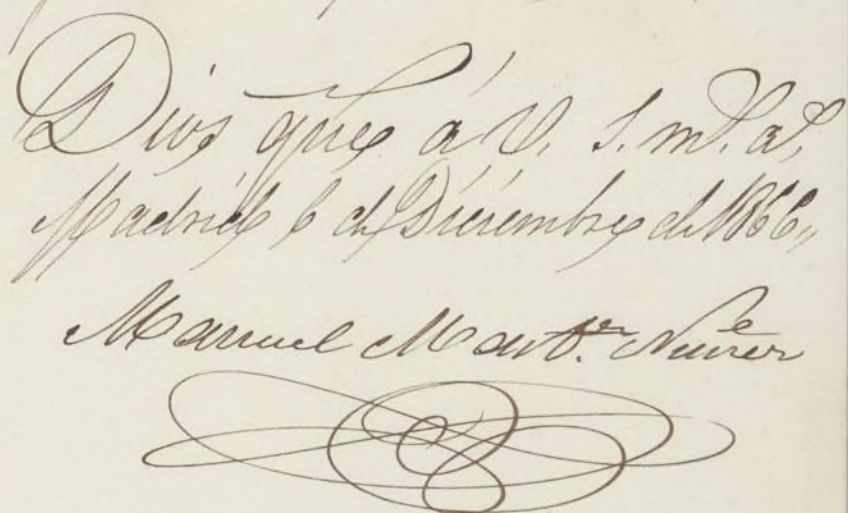 Dios gue á V. S. m.s a.s
Madrid 6 de Diciembre de 1866,,
Manuel Mart.ez Nuñez